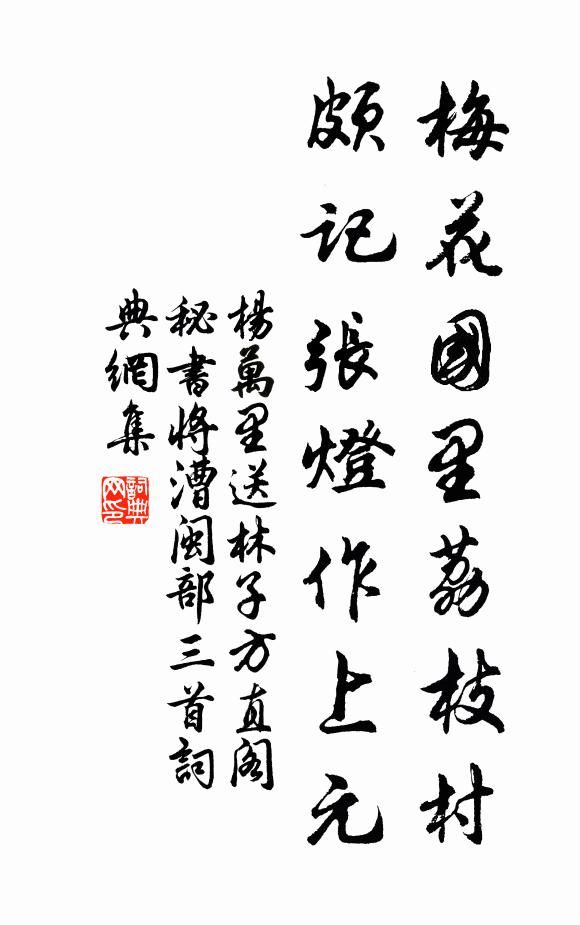 梅花國里荔枝村
頗記張燈作上元
楊萬里送林子方直閣
秘書將漕閩部三首詞
典網集
詞典网印